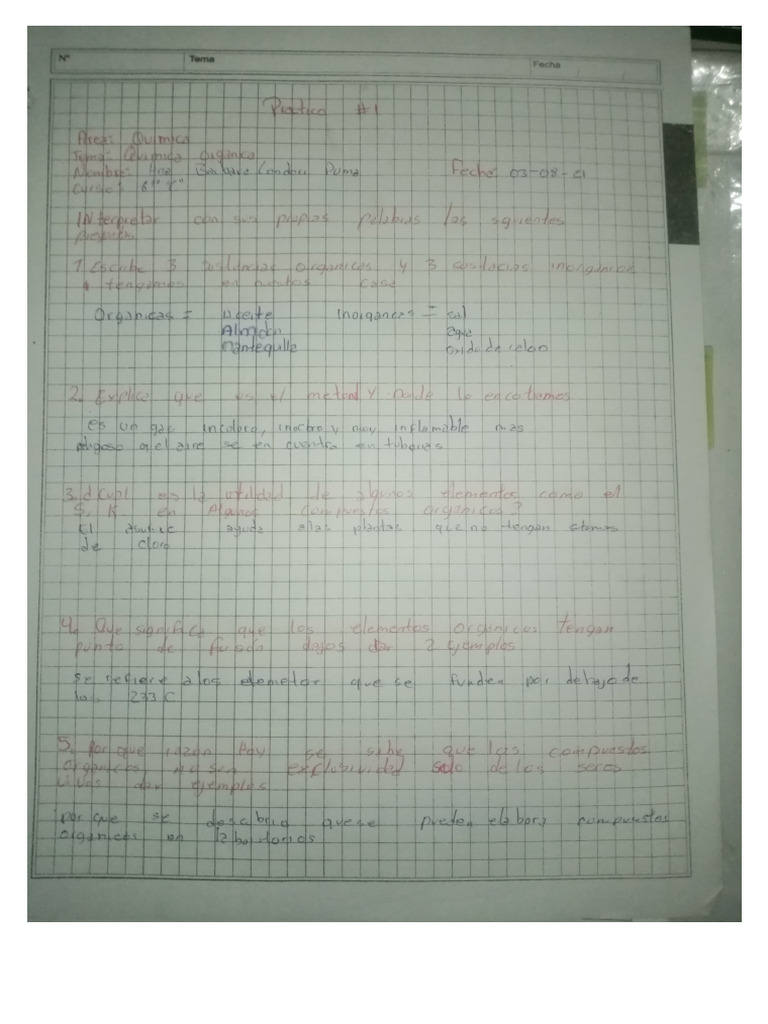 Nº Tema Fecha
Practico #1
Area: Quimica
Tema: Quimica organica
Nombre: Condori Puma Fecha: 03-08-21
Curso: 6º
INterpretar con sus propias palabras las siguentes
1. Escribe 3 sustancias organicas y 3 sustacias inorganicas
q tengamos en nuestras casa
Organicas = Aceite Inorganicas = sal
Almidon agua
mantequilla oxido de
2. Explica que es el metano y donde lo encotramos
es un gas incoloro, inoloro y muy inflamable mas
el aire se en cuentra en tuberias
3. ¿Cual es la utilidad de algunos elementos como el
S, K en algunos compuestos organicos?
El azufre ayuda alas plantas que no tengan atomos
de cloro
4. Que significa que los elementos organicos tengan
punto de fusion bajos dar 2 ejemplos
se refiere a los que se funden por debajo de
los 233 C
5. Por que razon hoy se sabe que las compuestos
organicos no son exclusividad solo de los seres
vivos dar ejemplos
por que se descubrio quese pueden elabora compuestos
organicos en laboratorios